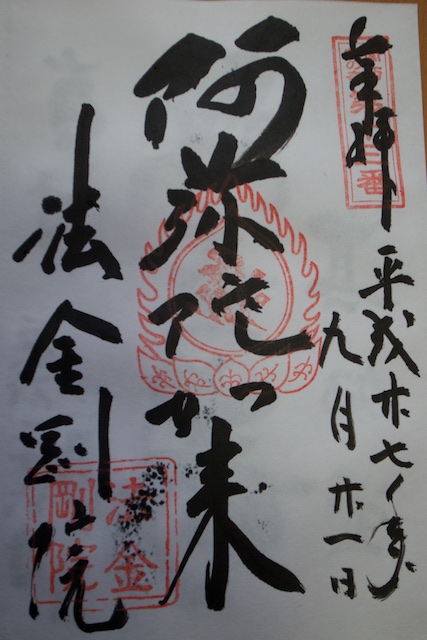 奉拝
平成廿七年
九月廿一日
阿弥陀如来
法金剛院
法金
剛院